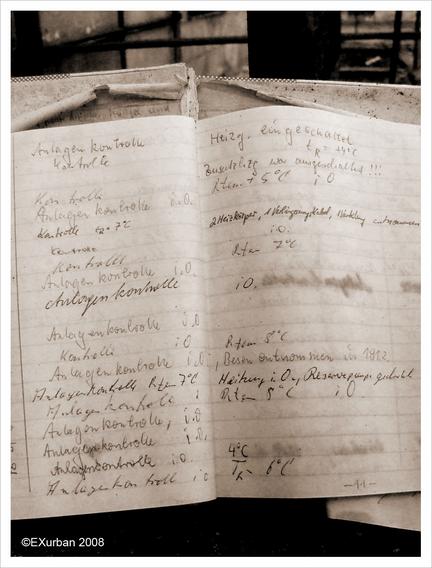 Anlagenkontrolle
Kontrolle
Kontrolle
Anlagenkontrolle i.O.
Kontrolle tR= 7°C
Kontrolle
Kontrolle
Anlagenkontrolle i.O.
Anlagenkontrolle
Anlagenkontrolle i.O
Kontrolle iO
Anlagenkontrolle i.O.
Anlagenkontrolle 7°C
Anlagenkontrolle i
Anlagenkontrolle, i.O
Anlagenkontrolle i.O.
Anlagenkontrolle i.O.
Anlagenkontroll i.O
Heizg. eingeschaltet
tR = 14°C
Zusatzhzg war ausgeschaltet !!!
+ 5°C iO
2 Heizkörper, 1 Verlängerungskabel, entnommen
i.O.
7°C
iO.
5°C
Besen entnommen in 1922
Heizung i.O., Reservepumpe
5°C iO
4°C
6°C
-11-
©EXurban 2008